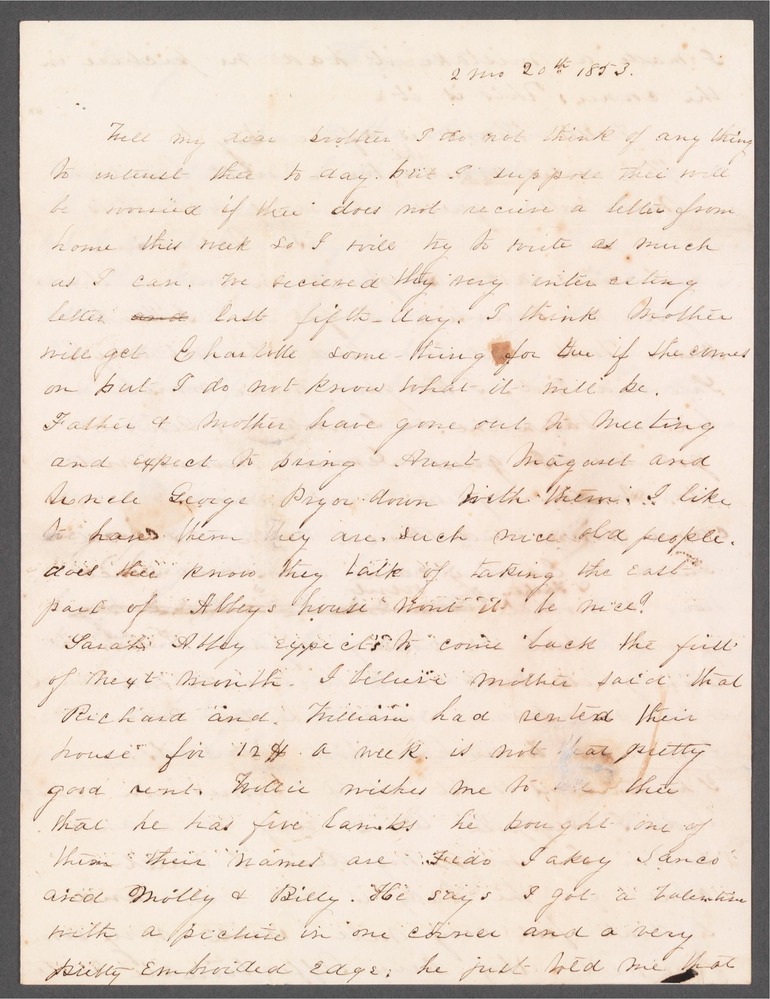 2 mo 20th 1853.
Well my dear brother I do not think of any thing
to interest thee to day. but I suppose thee will
be worried if thee does not recieve a letter from
home this week so I will try to write as much
as I can. We recieved thy very interesting
letter and last fifth-day. I think Mother
will get Charlotte some-thing for thee if she comes
on but I do not know what it will be.
Father & Mother have gone out to Meeting
and expect to bring Aunt Magaret and
Uncle George Pryor down with them. I like
to have them they are such nice old people.
does thee know they talk of taking the east
part of Abbeys house wont it be nice?
Sarah Abby expects to come back the first
of next month. I believe mother said that
Richard and William had rented their
house for 12 $ a week. is not that pretty
good rent. Willie wishes me to thee
that he has five lambs he bought one of
them their names are Fido Jakey Sanco
and Molly & Billy. He says I got a valentine
with a picture in one corner and a very
pretty embroided edge; he just told me that